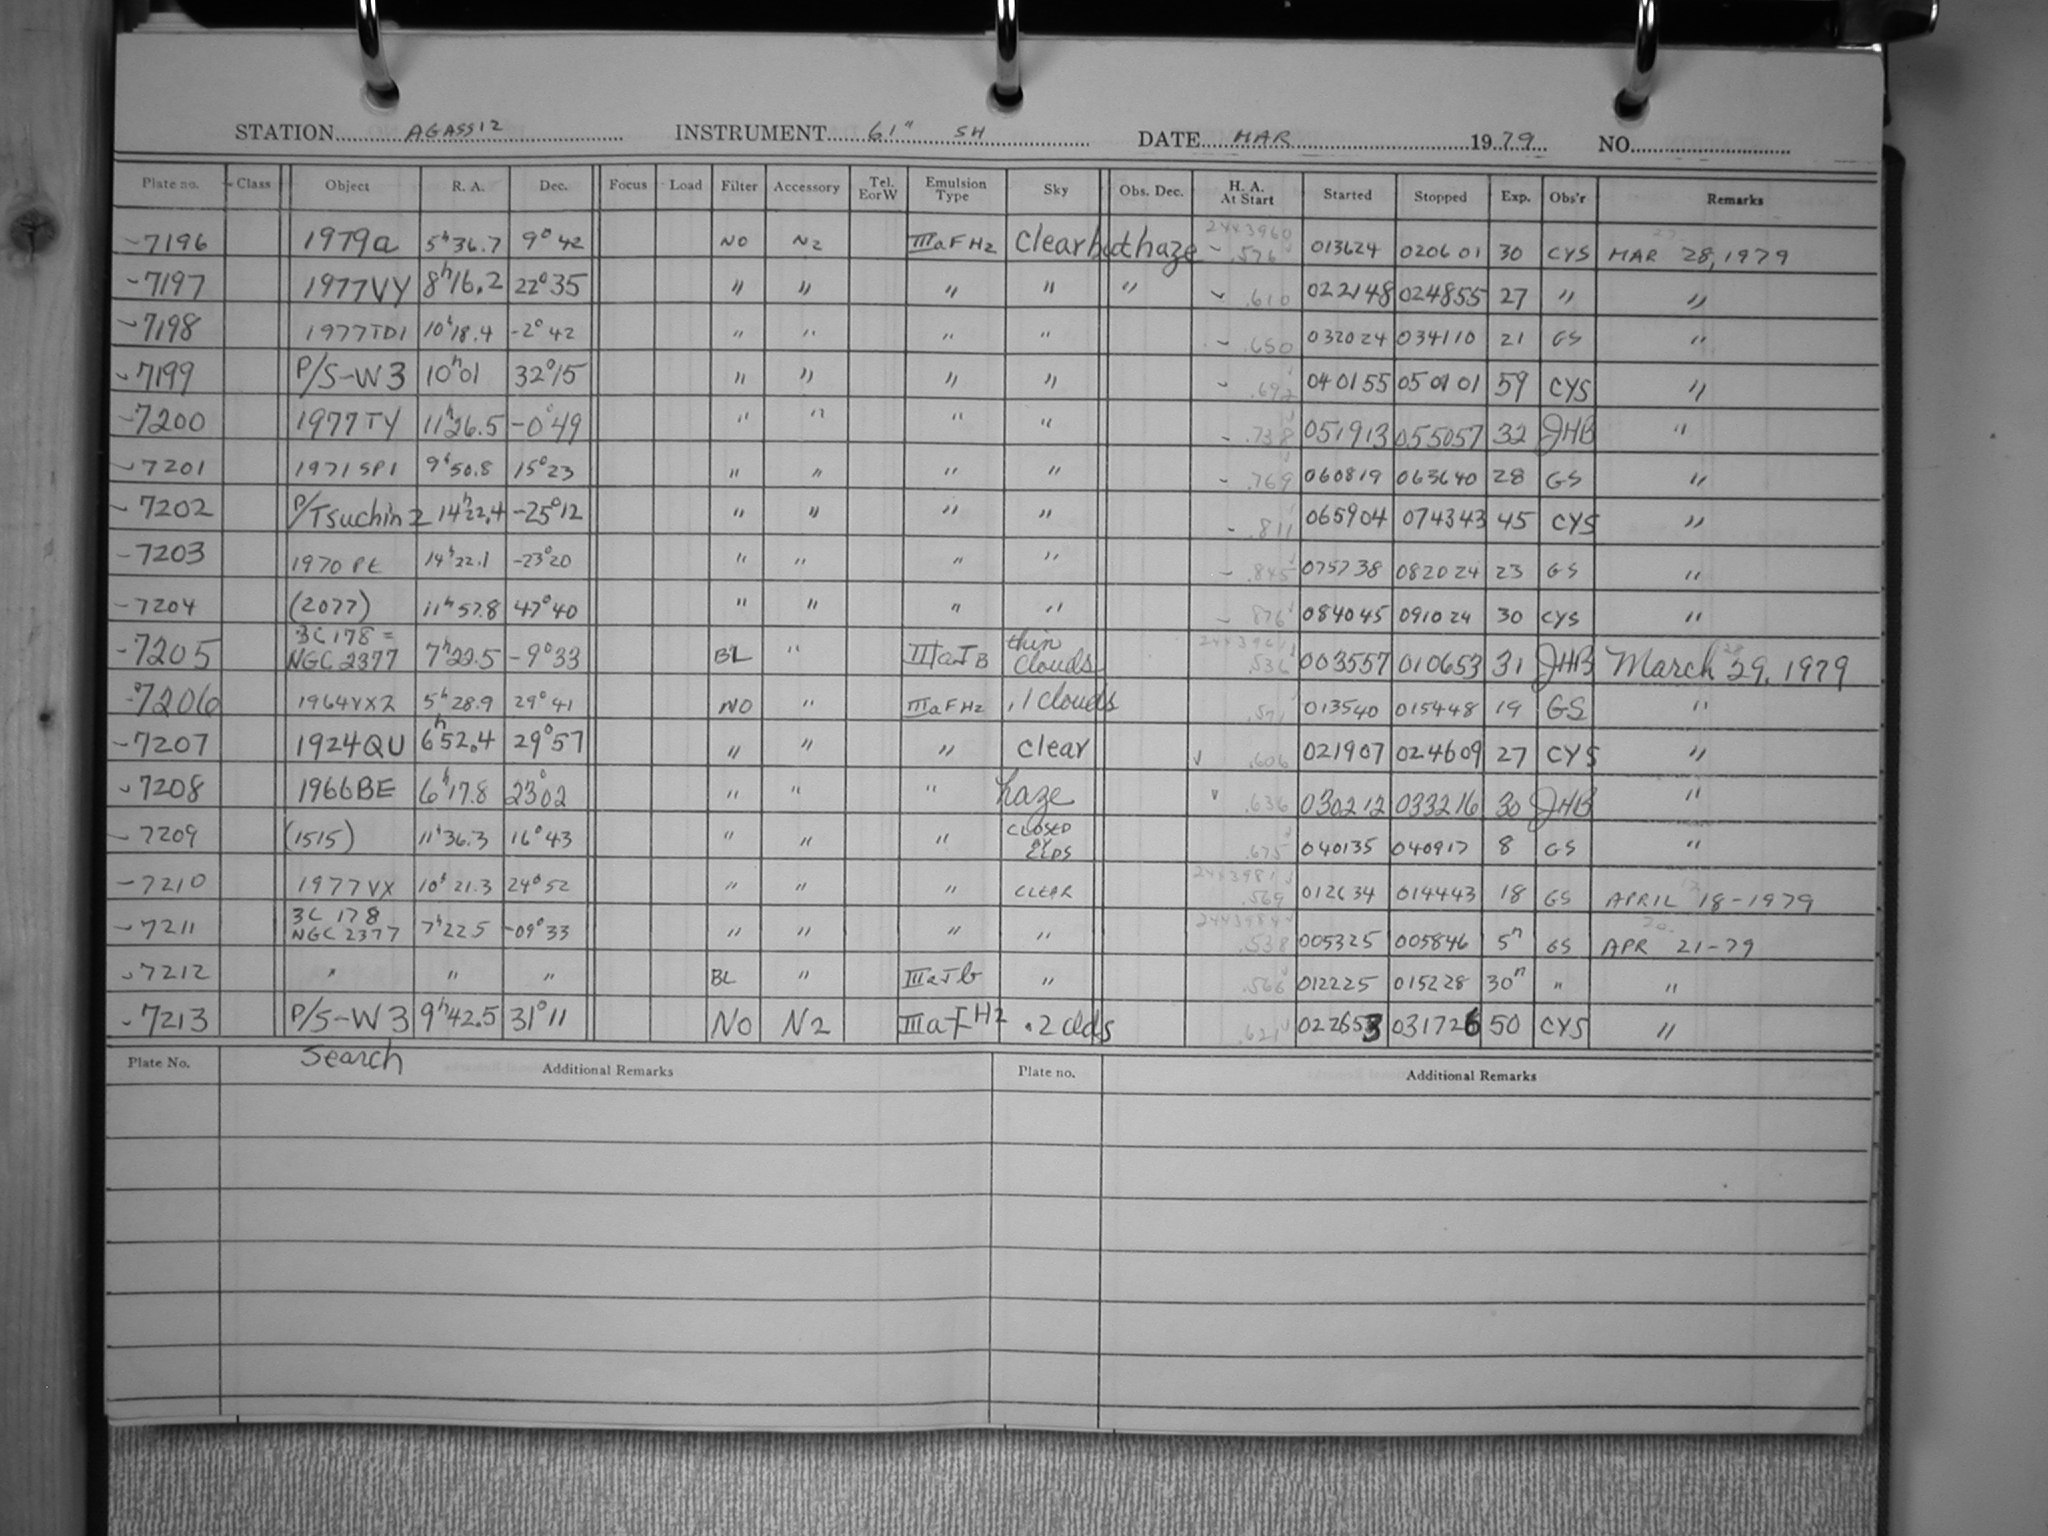 STATION AGASSIZ INSTRUMENT 61" SH DATE MAR 1979 NO.
Plate no. Class Object R. A. Dec. Focus Load Filter Accessory Tel. EorW Emulsion Type Sky Obs. Dec. H. A. At Start Started Stopped Exp. Obs'r Remarks
7196 1979a 5h36.7 9°42 NO N2 IIIaFH2 clear but haze 2443960 .576 013624 020601 30 CYS MAR 28, 1979
7197 1977VY 8h16.2 22°35 " " " " " .610 022148 024855 27 " "
7198 1977TD1 10h18.4 -2°42 " " " " .650 032024 034110 21 GS "
7199 P/S-W3 10h01 32°15 " " " " .692 040155 050101 59 CYS "
7200 1977TY 11h26.5 -0°49 " " " " .738 051913 055057 32 JHB "
7201 1971SP1 9h50.8 15°23 " " " " .769 060819 063640 28 GS "
7202 P/Tsuchin2 14h22.4 -25°12 " " " " .811 065904 074343 45 CYS "
7203 1970 PE 14h22.1 -23°20 " " " " .845 075738 082024 23 GS "
7204 (2077) 11h57.8 47°40 " " " " .876 084045 091024 30 CYS "
7205 3C178 = NGC 2377 7h22.5 -9°33 BL " IIIaJB thin clouds 2443961 .536 003557 010653 31 JHB March 29, 1979
7206 1964VX2 5h28.9 29°41 NO " IIIaFH2 .1 clouds .571 013540 015448 19 GS "
7207 1924QU 6h52.4 29°57 " " " clear .606 021907 024609 27 CYS "
7208 1966BE 6h17.8 23°02 " " " haze .636 030212 033216 30 JHB "
7209 (1515) 11h36.3 16°43 " " " CLOSED BY CLDS .675 040135 040917 8 GS "
7210 1977VX 10h21.3 24°52 " " " CLEAR 2443981 .569 012634 014443 18 GS APRIL 18-1979
7211 3C 178 NGC 2377 7h22.5 -09°33 " " " " 2443984 .538 005325 005846 5m GS APR 21-79
7212 " " " BL " IIIaJb " .566 012225 015228 30m " "
7213 P/S-W3 9h42.5 31°11 NO N2 IIIaFH2 .2 clds .621 022653 031726 50 CYS "
Search
Plate No. Additional Remarks Plate no. Additional Remarks